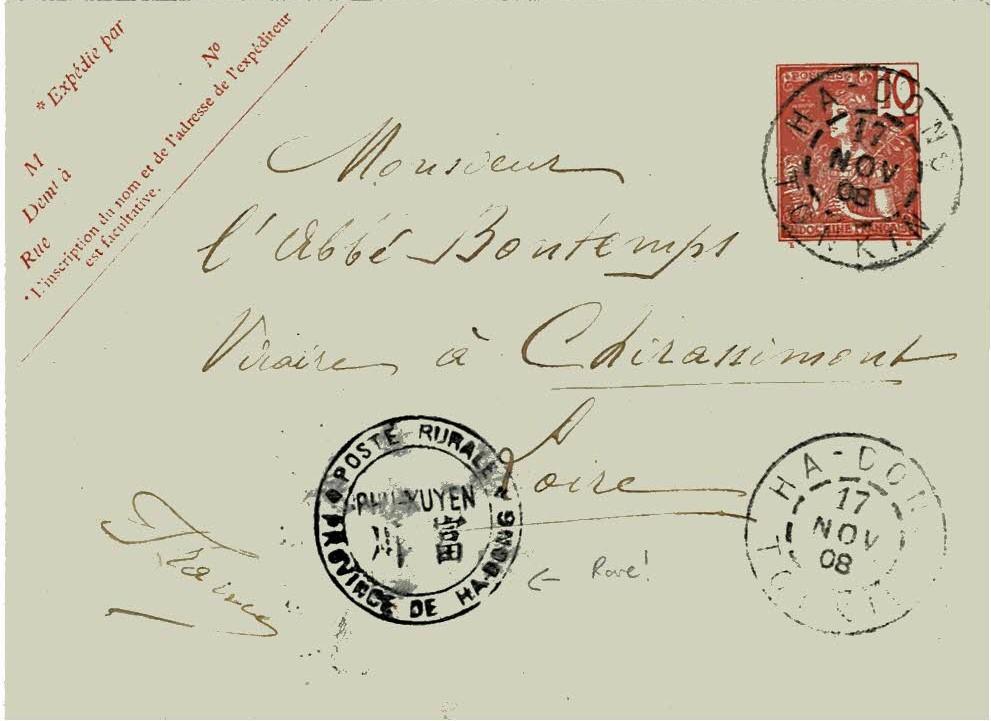 * Expédié par
N°
M
Demt à
Rue
* L'inscription du nom et de l'adresse de l'expéditeur
est facultative.
POSTES 10
INDOCHINE FRANÇAISE
HA-DONG
17
NOV
08
TONKIN
Monsieur
l'Abbé Bontemps
Viraire à Chirassimont
Loire
France
POSTE RURALE
PHU-XUYEN
川 富
PROVINCE DE HA-DONG
← Rare!
HA-DON
17
NOV
08
TO